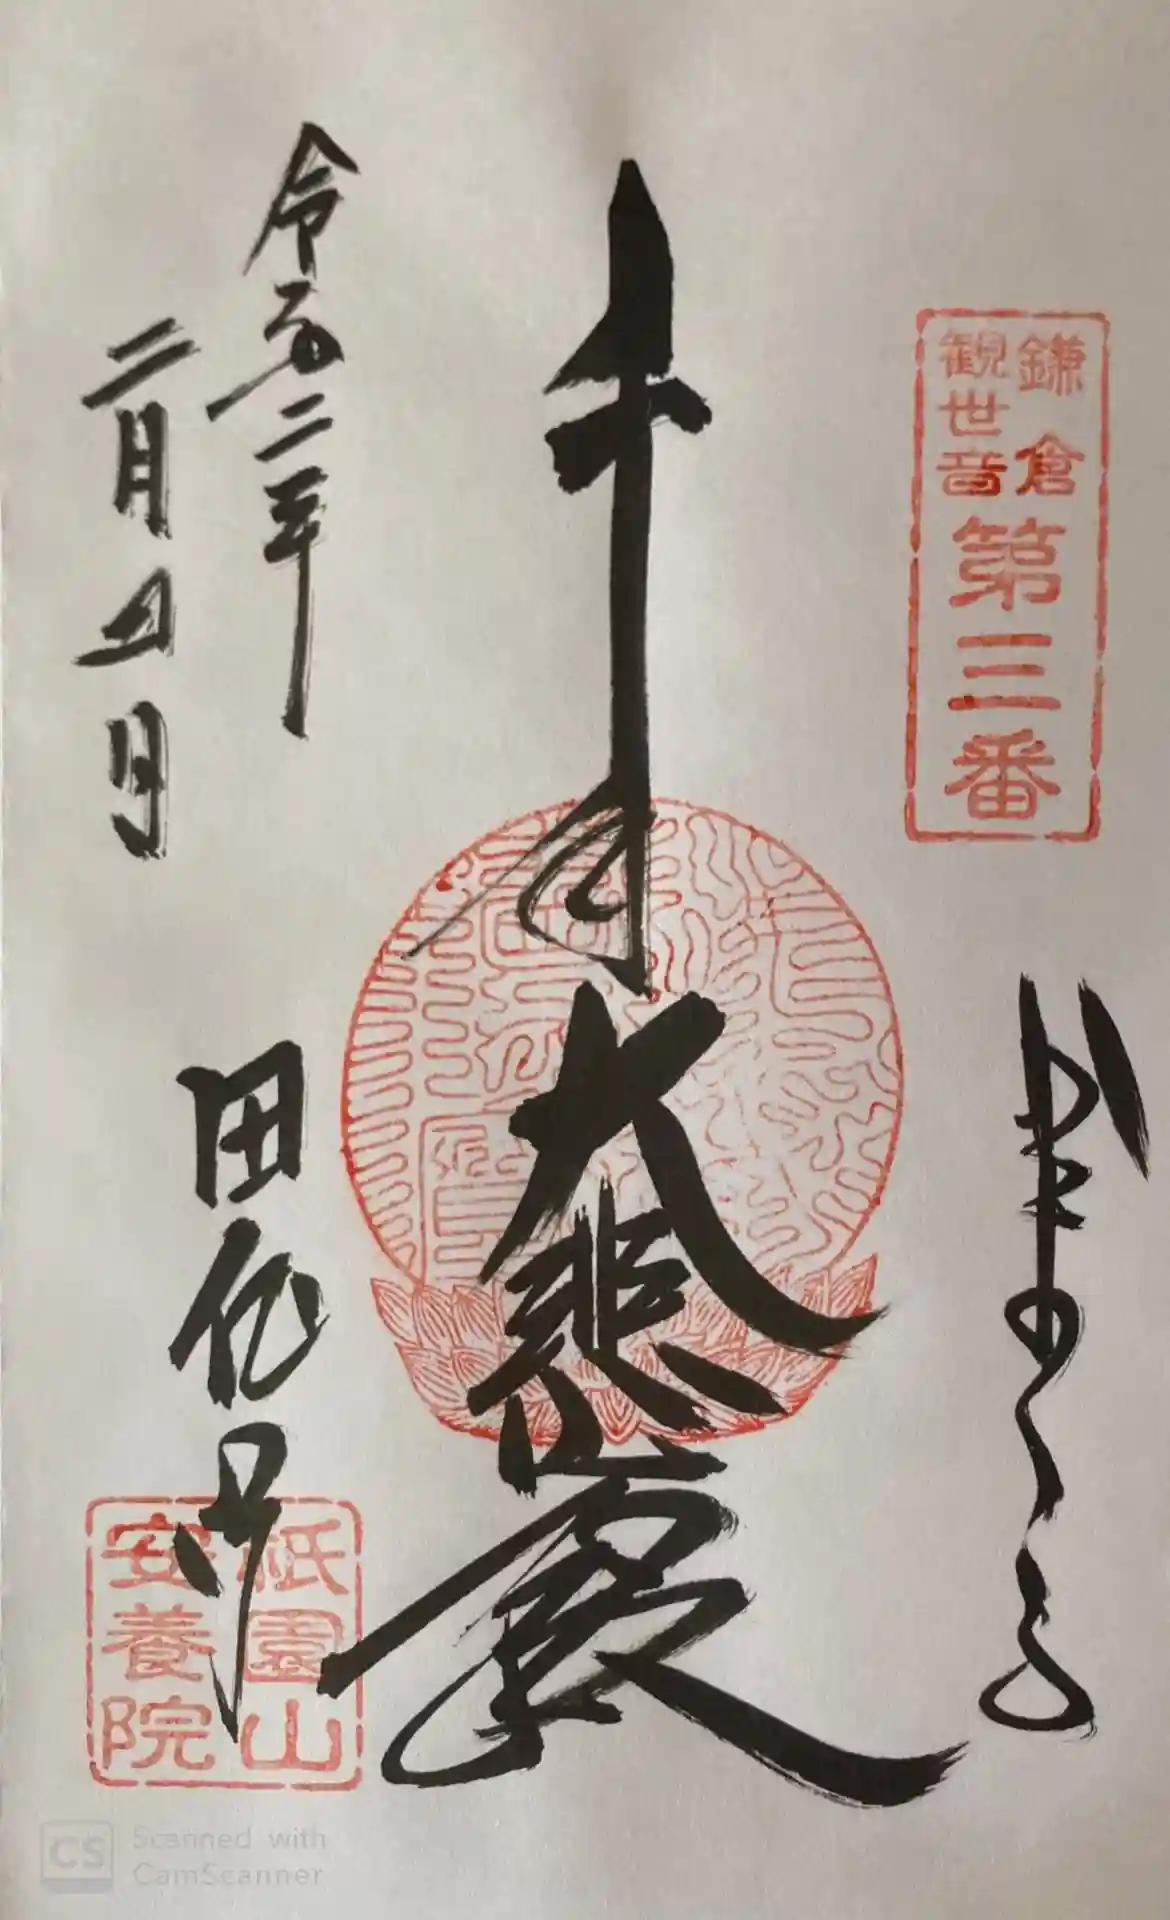 鎌倉
観世音
第三番
かまくら
千手大悲殿
令和二年
二月四日
田代寺
祇園山
安養院
CS Scanned with
CamScanner